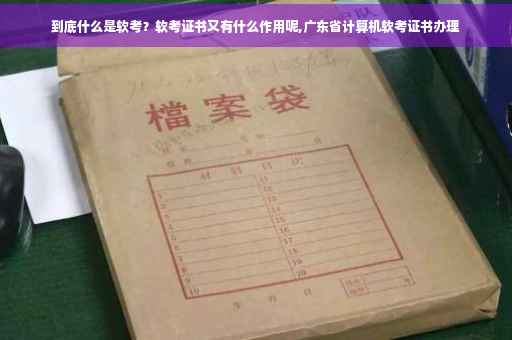 到底什么是软考？软考证书又有什么作用呢,广东省计算机软考证书办理
檔案袋
材料目次
1 11
2 12
3 13
4 14
5 15
6 16
7 17
8 18
9 19
10 20
年 月 日